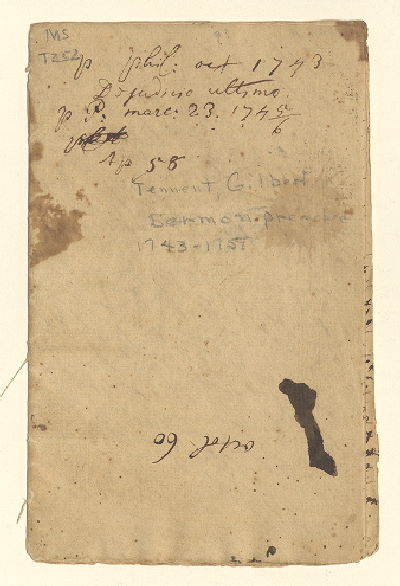 MS
T252
p Phil: oct 1743
De judicio ultimo
p P. marc: 23. 1745/6
Ap 58
Tennent, Gilbert
Sermon preached
1743-1757
octob 60